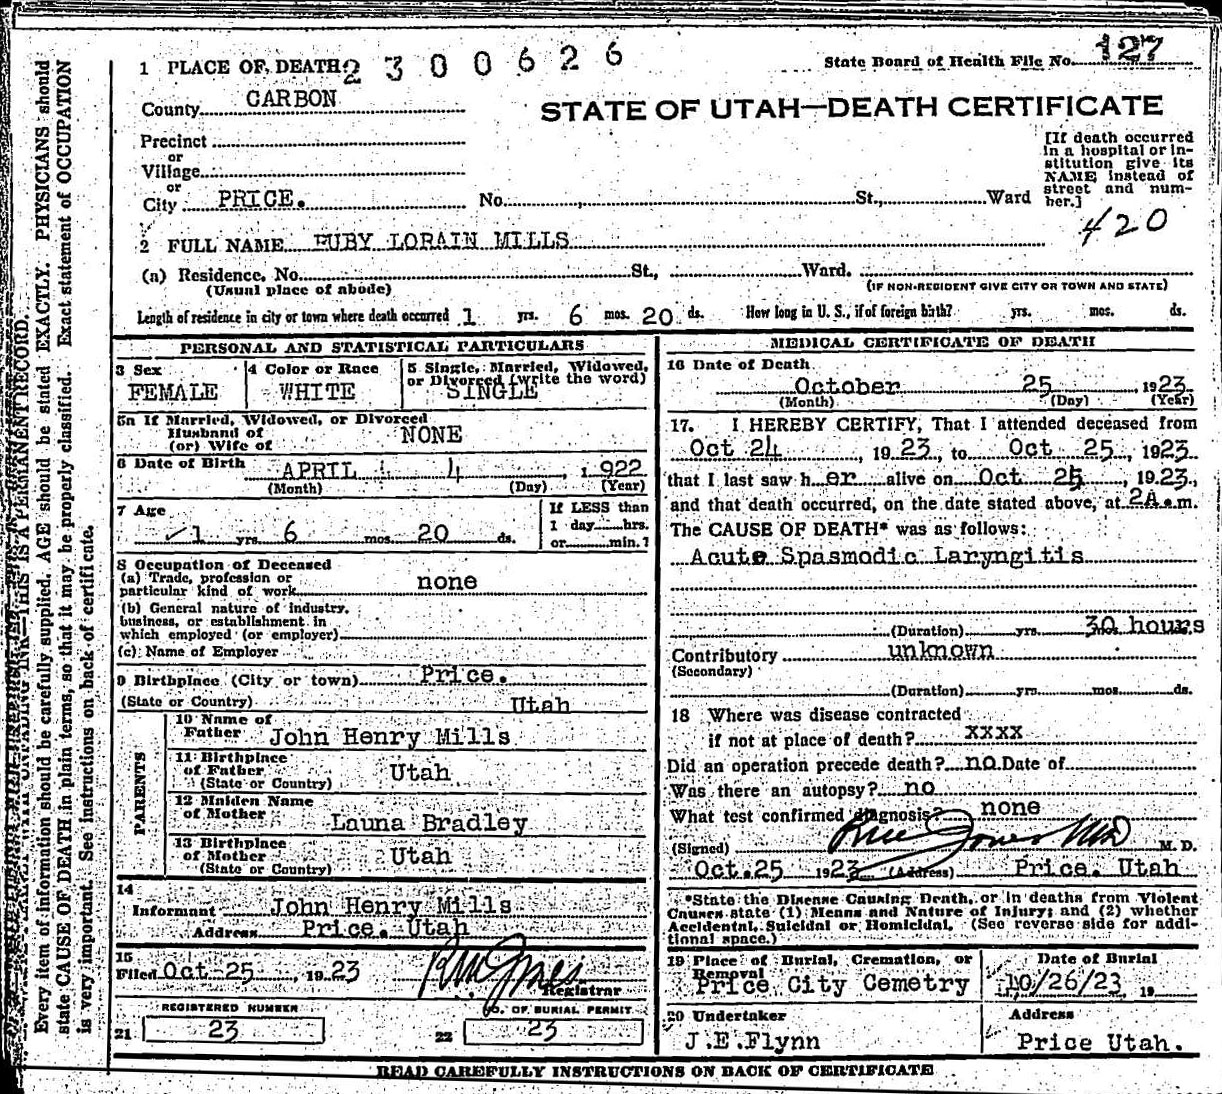 1 PLACE OF DEATH 2300626
State Board of Health File No. 127
County CARBON
STATE OF UTAH—DEATH CERTIFICATE
Precinct
or
Village
or
City PRICE. No. St., Ward
[If death occurred
in a hospital or in-
stitution give its
NAME instead of
street and num-
ber.]
420
2 FULL NAME RUBY LORAIN MILLS
(a) Residence, No. St., Ward.
(Usual place of abode) (IF NON-RESIDENT GIVE CITY OR TOWN AND STATE)
Length of residence in city or town where death occurred 1 yrs. 6 mos. 20 ds. How long in U. S., if of foreign birth? yrs. mos. ds.
PERSONAL AND STATISTICAL PARTICULARS
3 Sex FEMALE
4 Color or Race WHITE
5 Single, Married, Widowed,
or Divorced (write the word)
SINGLE
5a If Married, Widowed, or Divorced
Husband of
(or) Wife of NONE
6 Date of Birth APRIL 4, 1922
(Month) (Day) (Year)
7 Age 1 yrs. 6 mos. 20 ds.
If LESS than
1 day hrs.
or min.?
8 Occupation of Deceased
(a) Trade, profession or
particular kind of work none
(b) General nature of industry,
business, or establishment in
which employed (or employer)
(c) Name of Employer
9 Birthplace (City or town) Price.
(State or Country) Utah
PARENTS
10 Name of
Father John Henry Mills
11 Birthplace
of Father Utah
(State or Country)
12 Maiden Name
of Mother Launa Bradley
13 Birthplace
of Mother Utah
(State or Country)
14
Informant John Henry Mills
Address Price. Utah
15
Filed Oct 25, 1923
Registrar
REGISTERED NUMBER
21 23
NO. OF BURIAL PERMIT
22 23
MEDICAL CERTIFICATE OF DEATH
16 Date of Death
October 25, 1923
(Month) (Day) (Year)
17. I HEREBY CERTIFY, That I attended deceased from
Oct 24, 1923, to Oct 25, 1923
that I last saw her alive on Oct 25, 1923.,
and that death occurred, on the date stated above, at 2A.m.
The CAUSE OF DEATH* was as follows:
Acute Spasmodic Laryngitis
(Duration) yrs. mos. 30 hours
Contributory unknown
(Secondary)
(Duration) yrs. mos. ds.
18 Where was disease contracted
if not at place of death? XXXX
Did an operation precede death? no Date of
Was there an autopsy? no
What test confirmed diagnosis? none
(Signed) M. D.
Oct.25 1923 (Address) Price. Utah
*State the Disease Causing Death, or in deaths from Violent
Causes state (1) Means and Nature of Injury; and (2) whether
Accidental, Suicidal or Homicidal. (See reverse side for addi-
tional space.)
19 Place of Burial, Cremation, or
Removal
Price City Cemetry
Date of Burial
10/26/23, 19
20 Undertaker
J.E.Flynn
Address
Price Utah.
READ CAREFULLY INSTRUCTIONS ON BACK OF CERTIFICATE
THIS IS A PERMANENT RECORD.
Every item of information should be carefully supplied. AGE should be stated EXACTLY. PHYSICIANS should
state CAUSE OF DEATH in plain terms, so that it may be properly classified. Exact statement of OCCUPATION
is very important. See instructions on back of certificate.